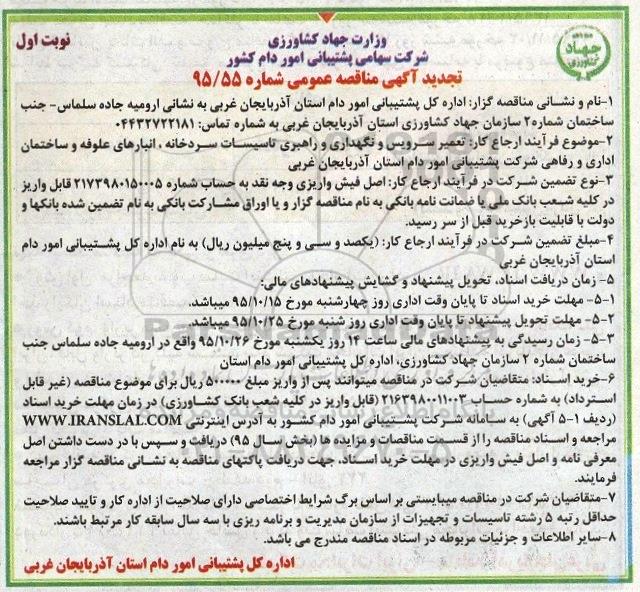 نوبت اول
وزارت جهاد کشاورزی
شرکت سهامی پشتیبانی امور دام کشور
تجدید آگهی مناقصه عمومی شماره ۹۵/۵۵
جهاد
کشاورزی
۱-نام و نشانی مناقصه گزار: اداره کل پشتیبانی امور دام استان آذربایجان غربی به نشانی ارومیه جاده سلماس- جنب
ساختمان شماره۲ سازمان جهاد کشاورزی استان آذربایجان غربی به شماره تماس: ۰۴۴۳۲۷۲۲۱۸۱
۲-موضوع فرآیند ارجاع کار: تعمیر سرویس و نگهداری و راهبری تاسیسات سردخانه ، انبارهای علوفه و ساختمان
اداری و رفاهی شرکت پشتیبانی امور دام استان آذربایجان غربی
۳-نوع تضمین شرکت در فرآیند ارجاع کار: اصل فیش واریزی وجه نقد به حساب شماره ۲۱۷۳۹۸۰۱۵۰۰۵ قابل واریز
در کلیه شعب بانک ملی یا ضمانت نامه بانکی به نام مناقصه گزار و یا اوراق مشارکت بانکی به نام تضمین شده بانکها و
دولت با قابلیت بازخرید قبل از سر رسید.
۴-مبلغ تضمین شرکت در فرآیند ارجاع کار: (یکصد و سی و پنج میلیون ریال) به نام اداره کل پشتیبانی امور دام
استان آذربایجان غربی
۵- زمان دریافت اسناد، تحویل پیشنهاد و گشایش پیشنهادهای مالی:
۵-۱- مهلت خرید اسناد تا پایان وقت اداری روز چهارشنبه مورخ ۹۵/۱۰/۱۵ میباشد.
۵-۲- مهلت تحویل پیشنهاد تا پایان وقت اداری روز شنبه مورخ ۹۵/۱۰/۲۵ میباشد.
۵-۳- زمان رسیدگی به پیشنهادهای مالی ساعت ۱۴ روز یکشنبه مورخ ۹۵/۱۰/۲۶ واقع در ارومیه جاده سلماس جنب
ساختمان شماره ۲ سازمان جهاد کشاورزی، اداره کل پشتیبانی امور دام استان
۶-خرید اسناد: متقاضیان شرکت در مناقصه میتوانند پس از واریز مبلغ ۵۰۰۰۰۰ ریال برای موضوع مناقصه (غیر قابل
استرداد) به شماره حساب ۲۱۶۳۹۸۰۰۱۱۰۰۳ (قابل واریز در کلیه شعب بانک کشاورزی) در زمان مهلت خرید اسناد
(ردیف ۱-۵ آگهی) به سامانه شرکت پشتیبانی امور دام کشور به آدرس اینترنتی WWW.IRANSLAL.COM
مراجعه و اسناد مناقصه را از قسمت مناقصات و مزایده ها (بخش سال ۹۵) دریافت و سپس با در دست داشتن اصل
معرفی نامه و اصل فیش واریزی در مهلت خرید اسناد، جهت دریافت پاکتهای مناقصه به نشانی مناقصه گزار مراجعه
فرمایند.
۷-متقاضیان شرکت در مناقصه میبایستی بر اساس برگ شرایط اختصاصی دارای صلاحیت از اداره کار و تایید صلاحیت
حداقل رتبه ۵ رشته تاسیسات و تجهیزات از سازمان مدیریت و برنامه ریزی با سه سال سابقه کار مرتبط باشند.
۸-سایر اطلاعات و جزئیات مربوطه در اسناد مناقصه مندرج می باشد.
اداره کل پشتیبانی امور دام استان آذربایجان غربی